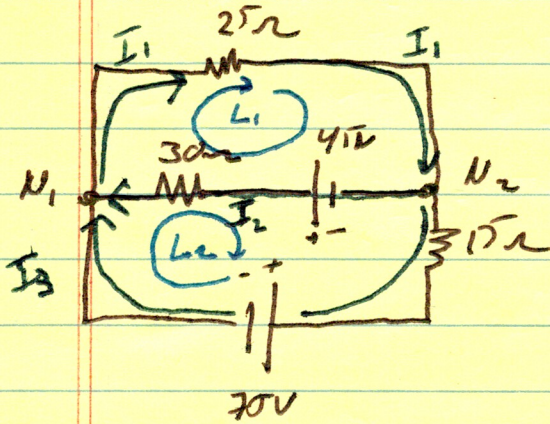 25Ω
I1 I1
L1
30Ω 45V
N1 N2
I2
+ -
L2 15Ω
I3
- +
70V